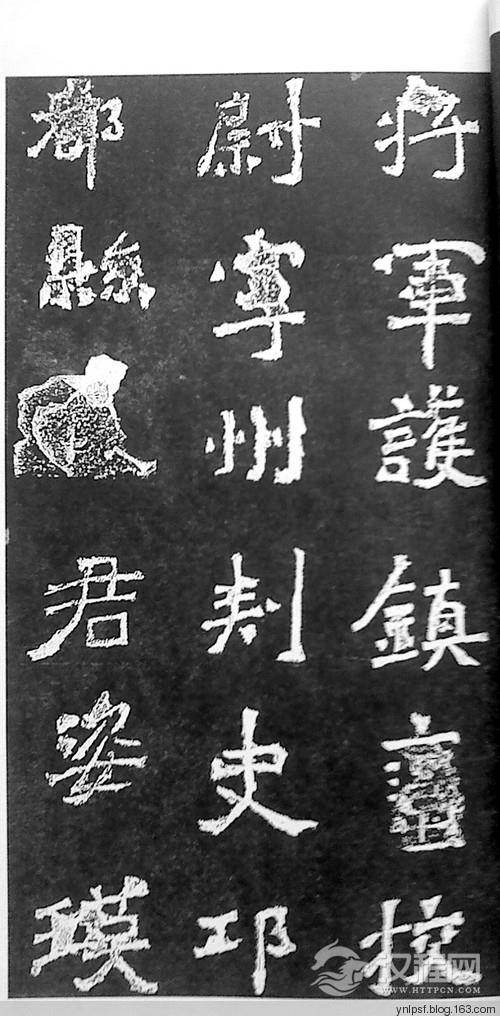 將軍護鎮蠻校
尉寧州刺史邛
都縣君姿瑛
汉程网
WWW.HTTPCN.COM
ynlpsf.blog.163.com